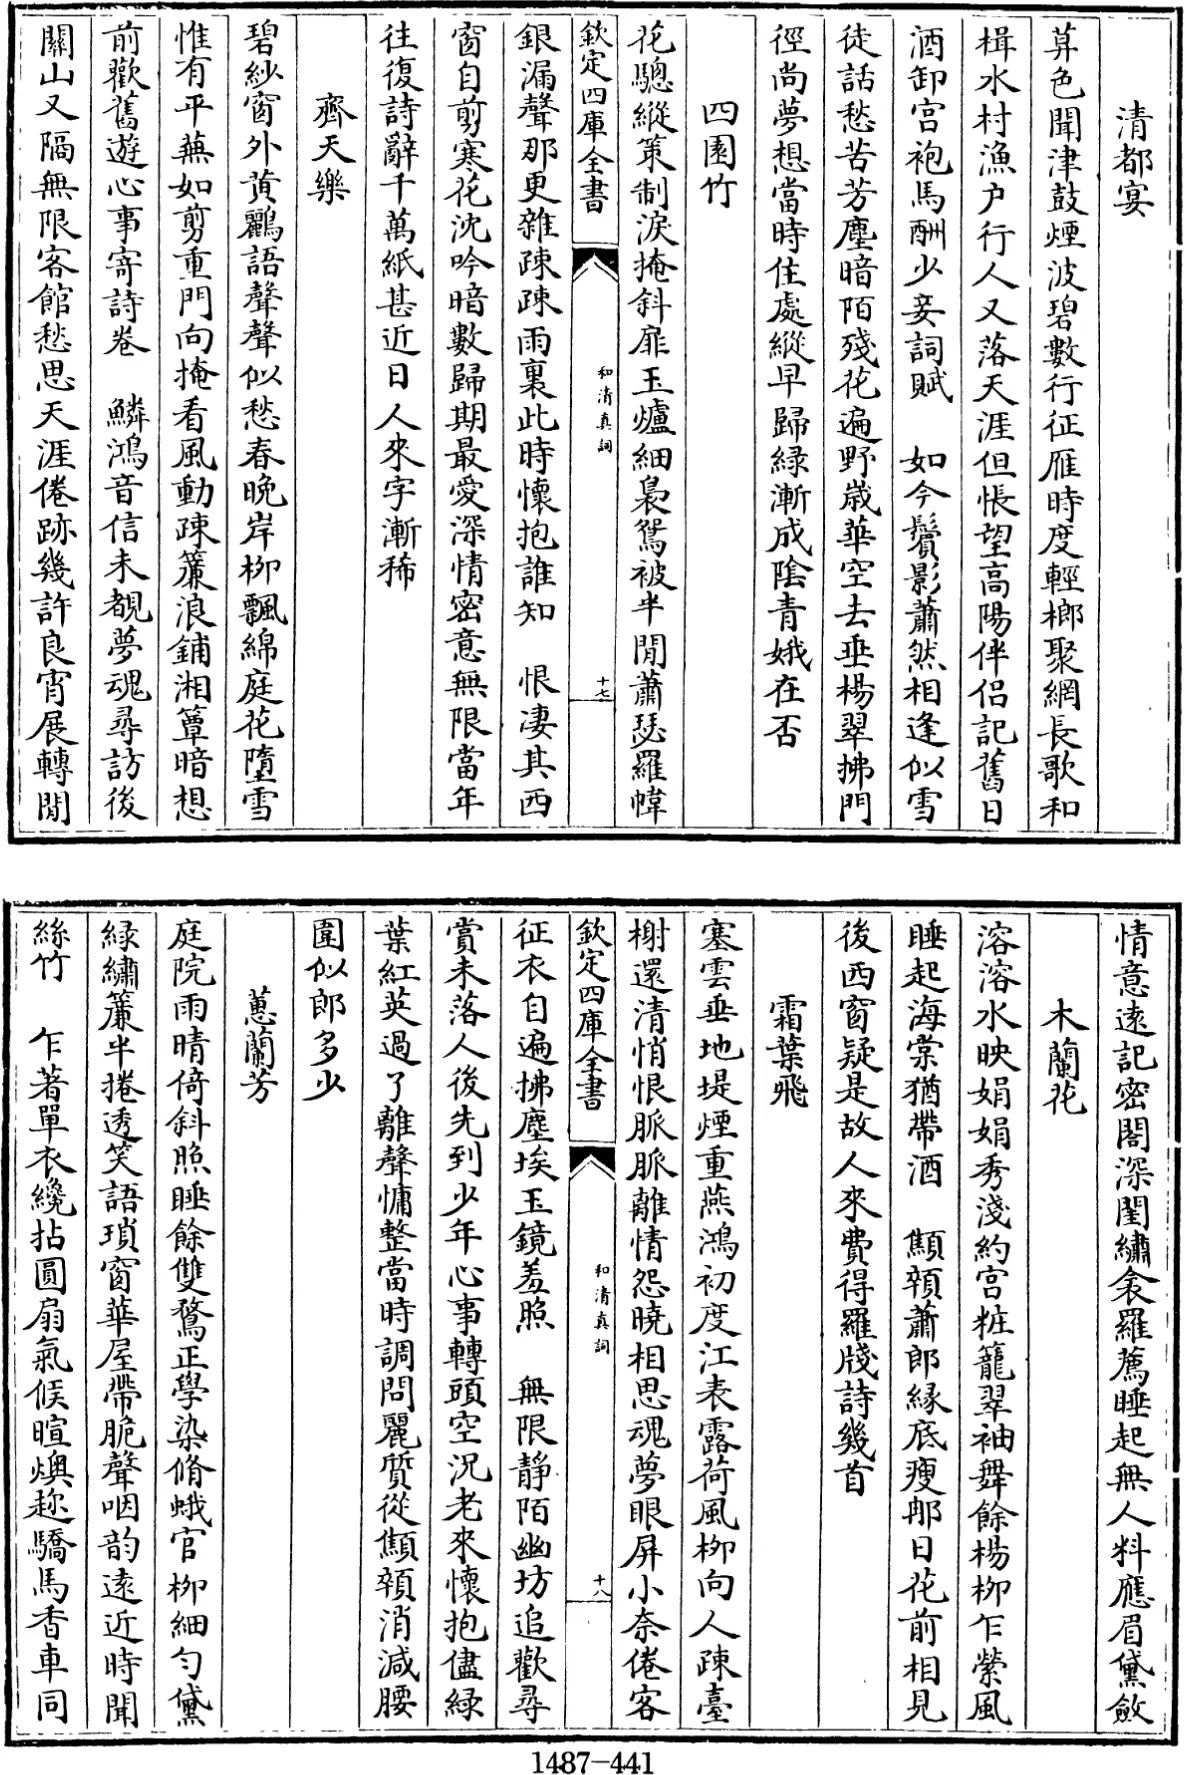 清都宴
算色聞津鼓煙波碧數行征雁時度輕榔聚網長歌和
楫水村漁户行人又落天涯但悵望高陽伴侣記舊日
酒卸宫袍馬酬少妾詞賦　如今鬢影蕭然相逢似雪
徒話愁苦芳塵暗陌殘花遍野歳華空去垂楊翠拂門
徑尚夢想當時住處縱早歸緑漸成陰青娥在否
四園竹
花驄縱策制淚掩斜扉玉爐細裊鴛被半閒蕭瑟羅幃
欽定四庫全書　和清真詞　十七
銀漏聲那更雜踈踈雨裏此時懷抱誰知　恨凄其西
窗自剪寒花沈吟暗數歸期最愛深情密意無限當年
往復詩辭千萬紙甚近日人來字漸稀
齊天樂
碧紗窗外黄鸝語聲聲似愁春晚岸柳飄綿庭花墮雪
惟有平蕪如剪重門向掩看風動踈簾浪鋪湘簟暗想
前歡舊遊心事寄詩卷　鱗鴻音信未覩夢魂尋訪後
關山又隔無限客館愁思天涯倦跡幾許良宵展轉閒
情意遠記密閣深閨繡衾羅薦睡起無人料應眉黛斂
木蘭花
溶溶水映娟娟秀淺約宫粧籠翠袖舞餘楊柳乍縈風
睡起海棠猶帶酒　顦顇蕭郎縁底瘦那日花前相見
後西窗疑是故人來費得羅牋詩幾首
霜葉飛
塞雲垂地堤煙重燕鴻初度江表露荷風柳向人踈臺
榭還清悄恨脈脈離情怨曉相思魂夢眼屏小奈倦客
欽定四庫全書　和清真詞　十八
征衣自遍拂塵埃玉鏡羞照　無限靜陌幽坊追歡尋
賞未落人後先到少年心事轉頭空况老來懷抱儘緑
葉紅英過了離聲慵整當時調問麗質從顦顇消減腰
圍似郎多少
蕙蘭芳
庭院雨晴倚斜照睡餘雙鶩正學染脩蛾官柳細匀黛
緑繡簾半捲透笑語瑣窗華屋帶脆聲咽韵遠近時聞
絲竹　乍著單衣纔拈圓扇氣候暄燠趂驕馬香車同
1487-441